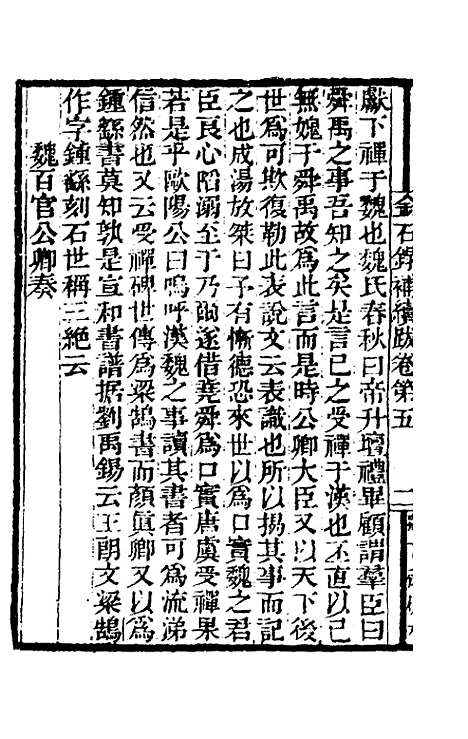 金石錄補續跋卷第五
二
獻下禪于魏也魏氏春秋曰帝升壇禮畢顧謂羣臣曰
舜禹之事吾知之矣是言已之受禪于漢也丕直以已
無媿于舜禹故爲此言而是時公卿大臣又以天下後
世爲可欺復勒此表說文云表識也所以揭其事而記
之也成湯放桀曰予有慚德恐來世以爲口實魏之君
臣良心䧟溺至于乃爾遂借堯舜爲口實唐虞受禪果
若是乎歐陽公曰嗚呼漢魏之事讀其書者可爲流涕
信然也又云受禪碑世傳爲梁鵠書而顏眞卿又以爲
鍾繇書莫知孰是宣和書譜据劉禹錫云王朗文梁鵠
作字鍾繇刻石世稱三絶云
魏百官公卿奏